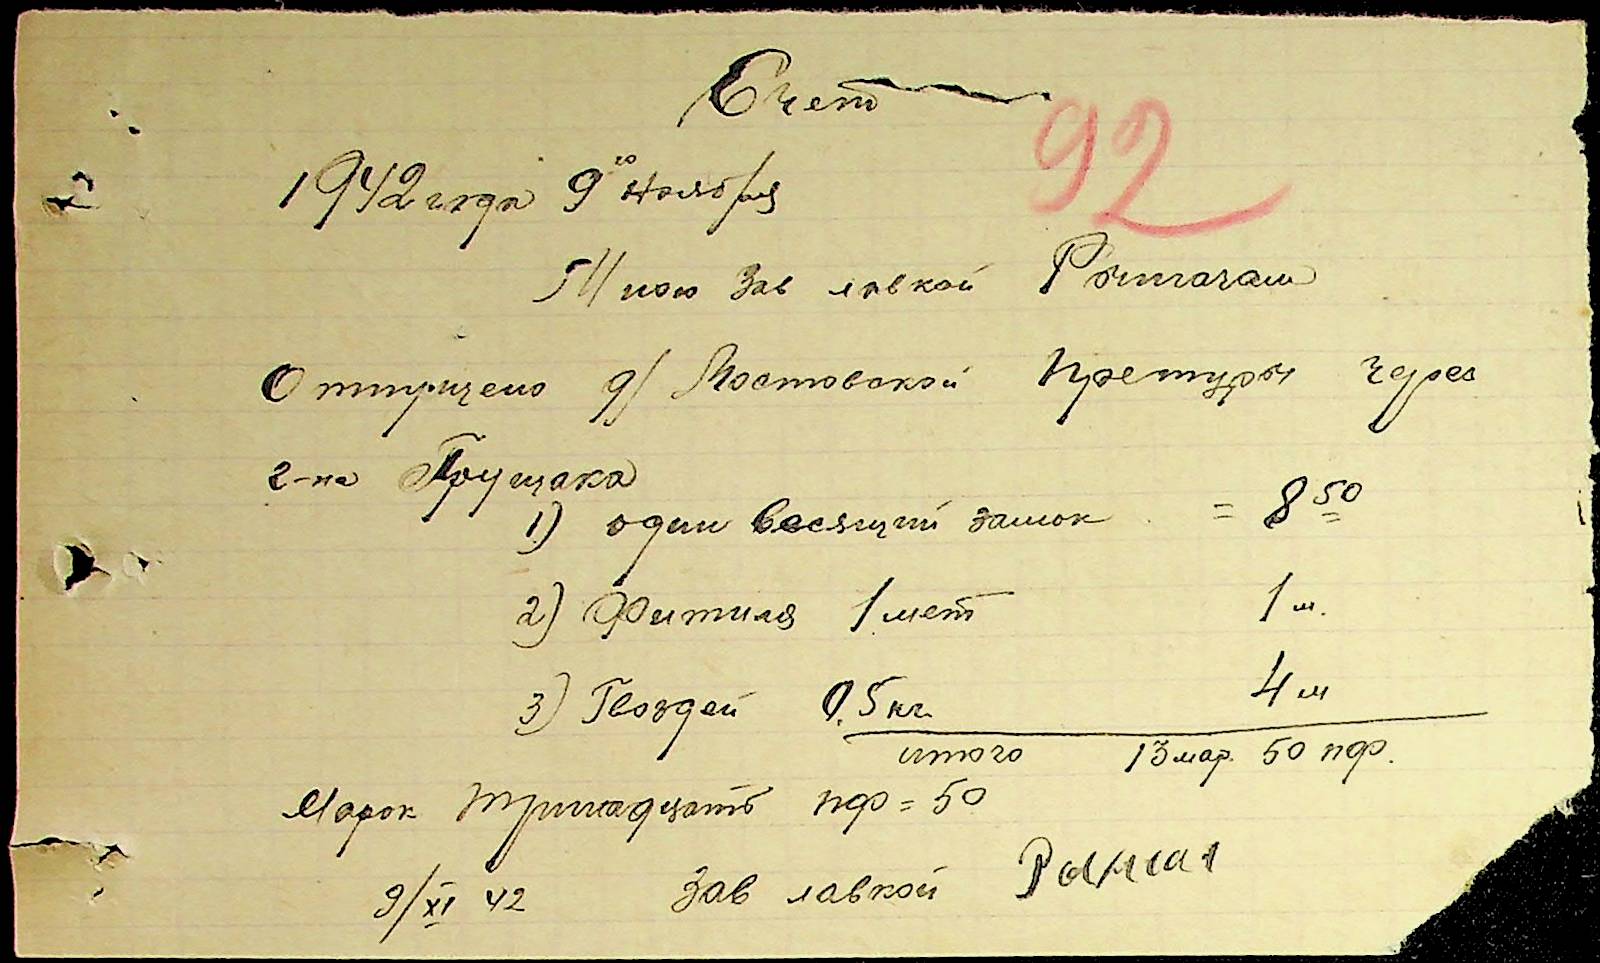 Счет
92
1942 года 9го Ноября
Мною Зав лавкой
Отпущено д/ Мостовской Претуры через
г-на Грущака
1) один весящий замок = 8 50
2) Фитиля 1 мет 1 м.
3) Гвоздей 0,5 кг. 4 м
итого 13 мар. 50 пф.
Марок тринадцать пф = 50
9/XI 42 Зав лавкой